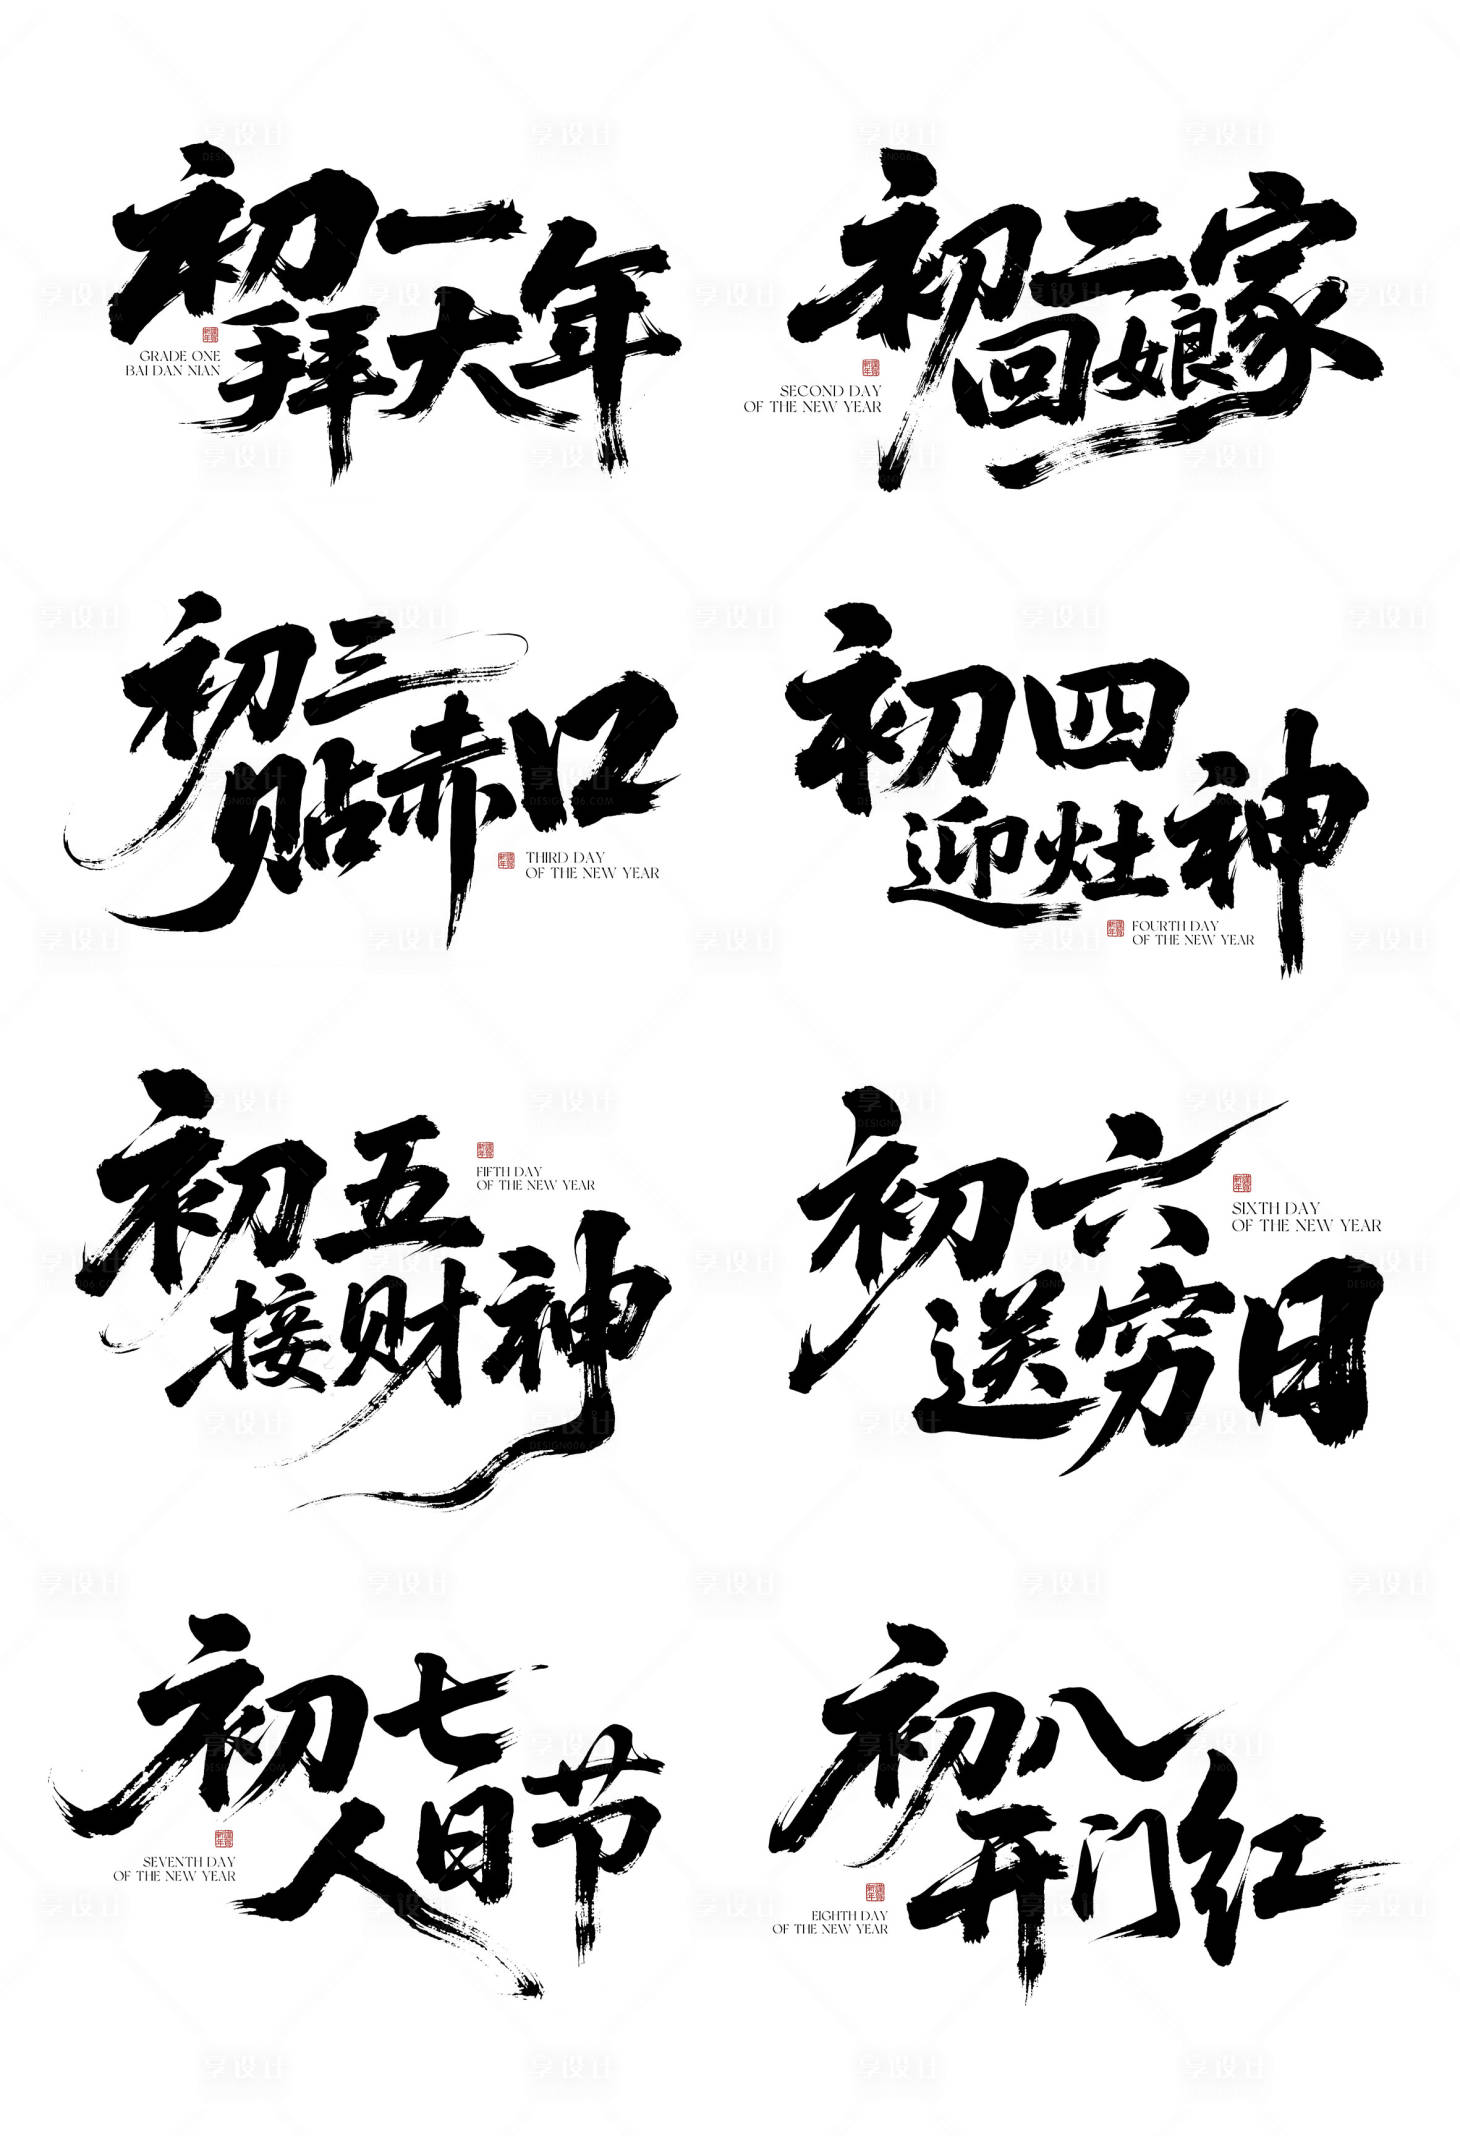 初一
拜大年
GRADE ONE
BAI DAN NIAN
初二
回娘家
SECOND DAY
OF THE NEW YEAR
初三
贴赤口
THIRD DAY
OF THE NEW YEAR
初四
迎灶神
FOURTH DAY
OF THE NEW YEAR
初五
接财神
FIFTH DAY
OF THE NEW YEAR
初六
送穷日
SIXTH DAY
OF THE NEW YEAR
初七
人日节
SEVENTH DAY
OF THE NEW YEAR
初八
开门红
EIGHTH DAY
OF THE NEW YEAR
享设计